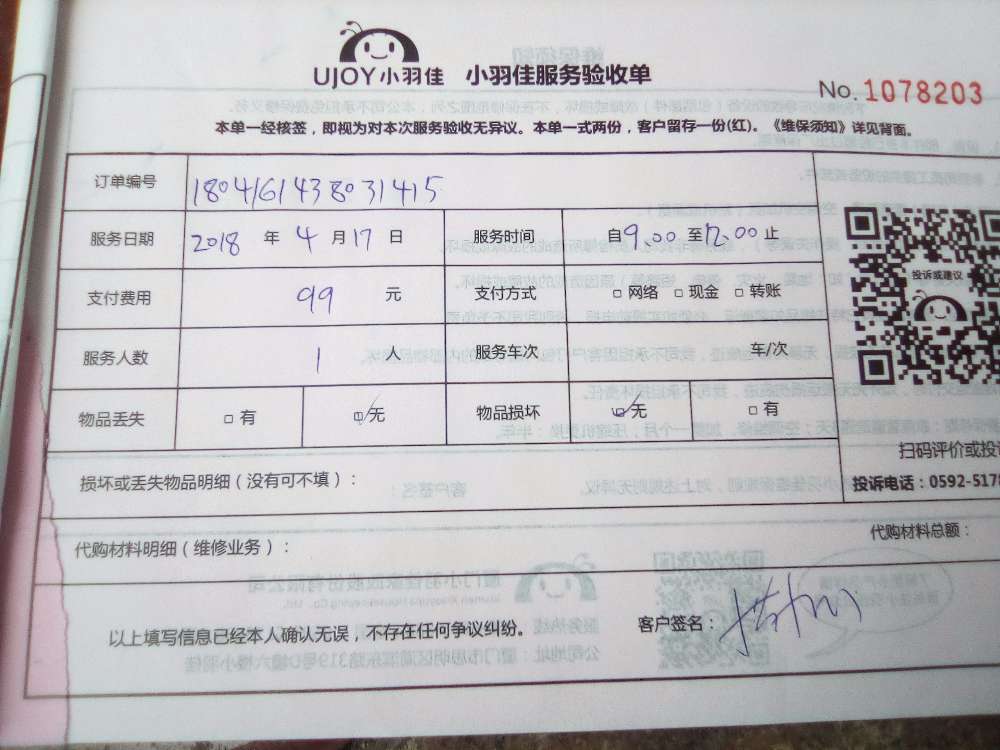 UJOY小羽佳 小羽佳服务验收单
No. 1078203
本单一经核签，即视为对本次服务验收无异议。本单一式两份，客户留存一份(红)。《维保须知》详见背面。
订单编号 1804161438031415
服务日期 2018 年 4 月 17 日 服务时间 自9.00 至12.00止
支付费用 99 元 支付方式 □ 网络 □ 现金 □ 转账
投诉或建议
服务人数 1 人 服务车次 车/次
物品丢失 □ 有 ☑ 无 物品损坏 ☑ 无 □ 有
扫码评价或投诉
损坏或丢失物品明细（没有可不填）：
投诉电话：0592-5178
代购材料明细（维修业务）：
代购材料总额：
以上填写信息已经本人确认无误，不存在任何争议纠纷。
客户签名：